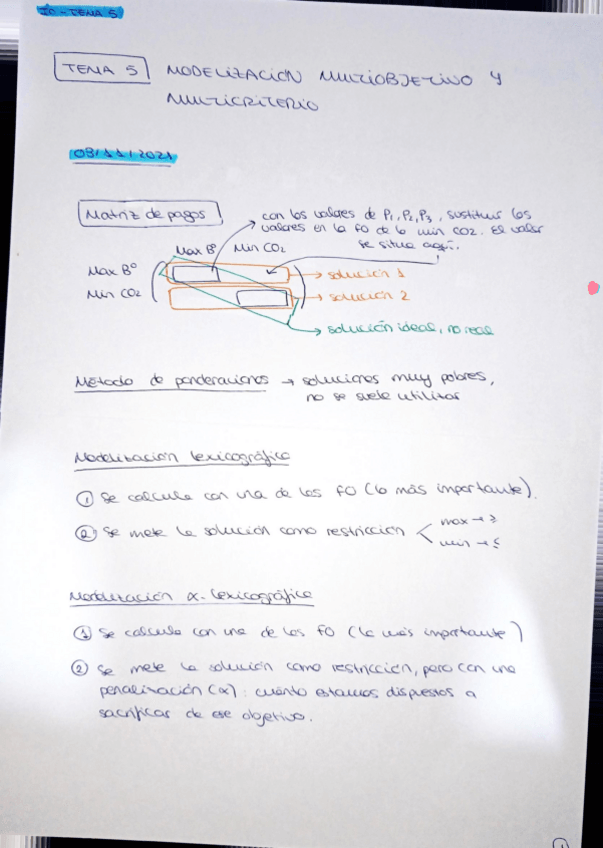 IO - TEMA 5
TEMA 5 MODELIZACIÓN MULTIOBJETIVO Y
MULTICRITERIO
08/11/2021
Matriz de pagos
con los valores de P1, P2, P3, sustituir los
valores en la FO de la min CO2. El valor
se situa aquí.
Max Bº Min CO2
Max Bº
Min CO2
→ solución 1
→ solución 2
→ solución ideal, no real
Método de ponderaciones → soluciones muy pobres,
no se suele utilizar
Modelización lexicográfica
① Se calcula con una de las FO (la más importante).
② Se mete la solución como restricción < max → ≥
min → ≤
Modelización α-lexicográfica
① Se calcula con una de las FO (la más importante)
② Se mete la solución como restricción, pero con una
penalización (α): cuánto estamos dispuestos a
sacrificar de ese objetivo.
1